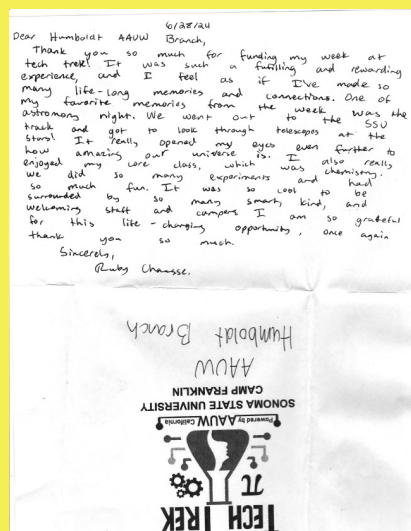 6/28/24
Dear Humboldt AAUW Branch,
Thank you so much for funding my week at
tech trek! It was such a fulfilling and rewarding
experience, and I feel as if I've made so
many life-long memories and connections. One of
my favorite memories from the week was the
astronomy night. We went out to the SSU
track and got to look through telescopes at the
stars! It really opened my eyes even further to
how amazing our universe is. I also really
enjoyed my core class, which was chemistry.
we did so many experiments and had
so much fun. It was so cool to be
surrounded by so many smart, kind, and
welcoming staff and campers I am so grateful
for this life-changing opportunity, once again
thank you so much.
Sincerely,
Ruby Chausse.
TECH TREK
π
Powered by AAUW California
SONOMA STATE UNIVERSITY
CAMP FRANKLIN
AAUW
Humboldt Branch